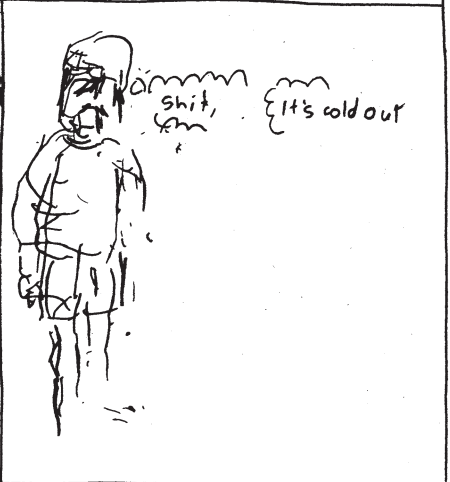 shit,
It's cold out